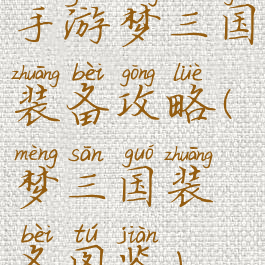 手游梦三国
zhuāng bèi gōng lüè
装备攻略(
mèng sān guó zhuāng
梦三国装
bèi tú jiàn
备图鉴)